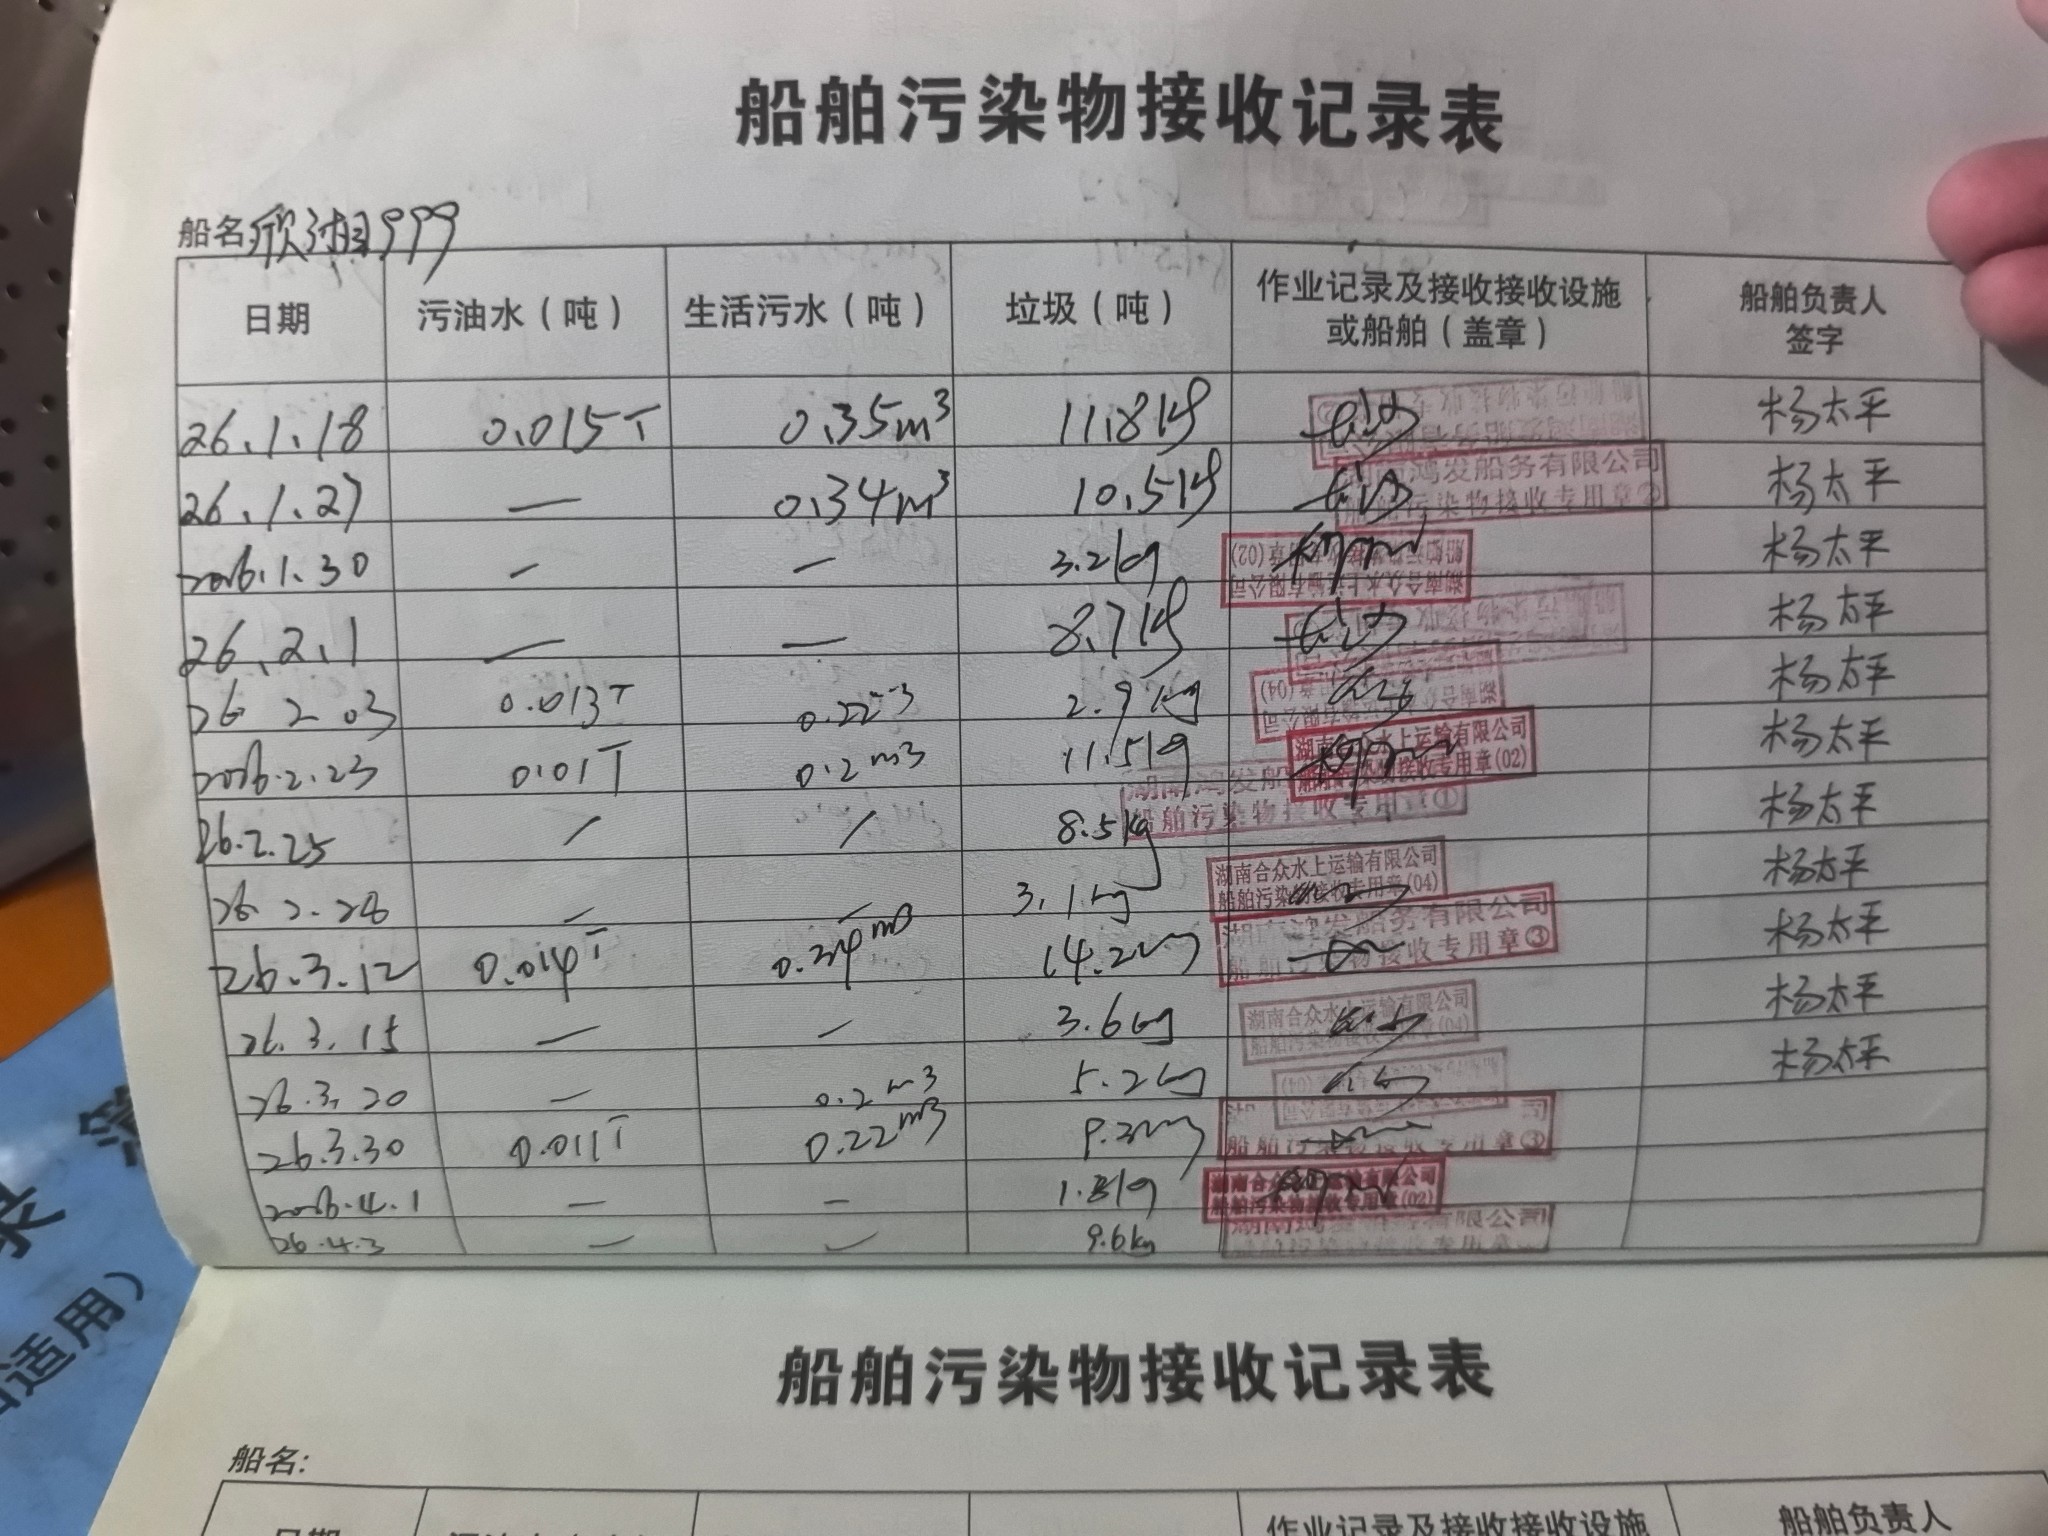 船舶污染物接收记录表
船名:欣湘999
日期 污油水（吨） 生活污水（吨） 垃圾（吨） 作业记录及接收接收设施或船舶（盖章） 船舶负责人签字
26.1.18 0.015T 0.35m³ 11.8kg 杨太平
26.1.27 — 0.34m³ 10.5kg 鸿发船务有限公司 船舶污染物接收专用章② 杨太平
2026.1.30 — — 3.2kg 湖南合众水上运输有限公司 船舶污染物接收专用章(02) 杨太平
26.2.1 — — 8.7kg 杨太平
26 2 03 0.013T 0.22m³ 2.9kg (04) 杨太平
2026.2.23 0.01T 0.2m³ 11.5kg 湖南合众水上运输有限公司 船舶污染物接收专用章(02) 杨太平
26.2.25 / / 8.5kg 湖南鸿发船 船舶污染物接收专用章① 杨太平
26 2.26 — — 3.1kg 湖南合众水上运输有限公司 船舶污染物接收专用章(04) 杨太平
26.3.12 0.014T 0.34m³ 14.2kg 湖南鸿发船务有限公司 船舶污染物接收专用章③ 杨太平
26.3.15 — — 3.6kg 湖南合众水上运输有限公司 船舶污染物接收专用章(04) 杨太平
26.3.20 — 0.2m³ 5.2kg (04) 杨太平
26.3.30 0.011T 0.22m³ 9.2kg 船舶污染物接收专用章③
2026.4.1 — — 1.8kg 湖南合众水上运输有限公司 船舶污染物接收专用章(02)
26.4.3 — — 9.6kg 有限公司
船舶污染物接收记录表
船名:
日期 作业记录及接收接收设施 船舶负责人
适用）
录